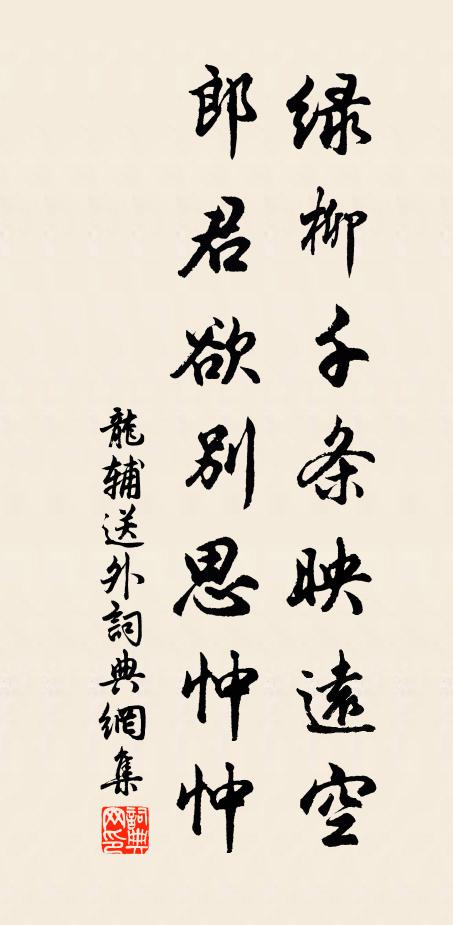 绿柳千条映遠空
郎君欲别思忡忡
龍辅送外詞典網集
詞典網印